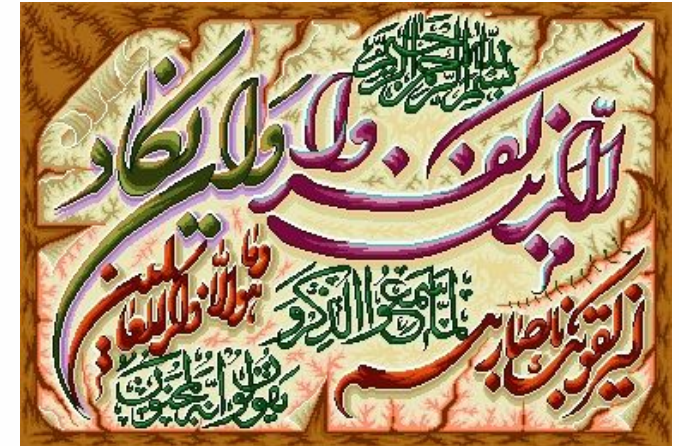 بسم الله الرحمن الرحيم
وان يكاد
الذين كفروا
ليزلقونك بابصارهم
لما سمعوا الذكر و
يقولون انه لمجنون
وما هو الا ذكر للعالمين